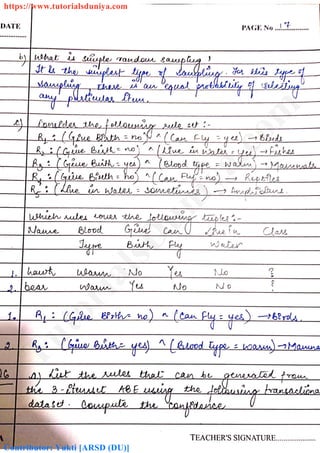 https://www.tutorialsduniya.com
DATE PAGE No 17
b) What is simple random sampling !
It is the simplest type of sampling. For this type of
sampling there is an equal probability of selecting
any particular item.
c) Consider the following rule set :-
R1 : (Give Birth = no) ^ (Can Fly = yes) → Birds
R2 : (Give Birth = no) ^ (Live in Water = yes) → Fishes
R3 : (Give Birth = yes) ^ (Blood type = warm) → Mammals
R4 : (Give Birth = no) ^ (Can Fly = no) → Reptiles
R5 : (Live in Water = sometimes) → Amphibians
Which rules cover the following tuples :-
Name Blood Give Can Live in Class
Type Birth Fly Water
1. hawk warm No Yes No ?
2. bear warm Yes No No ?
1. R1 : (Give Birth = no) ^ (Can Fly = yes) → Birds.
2. R3 : (Give Birth = yes) ^ (Blood type = warm) → Mamma
Q6 a) List the rules that can be generated from
the 3-itemset ABE using the following transactional
dataset. Compute the confidence
TEACHER'S SIGNATURE
Contributor: Yukti [ARSD (DU)]